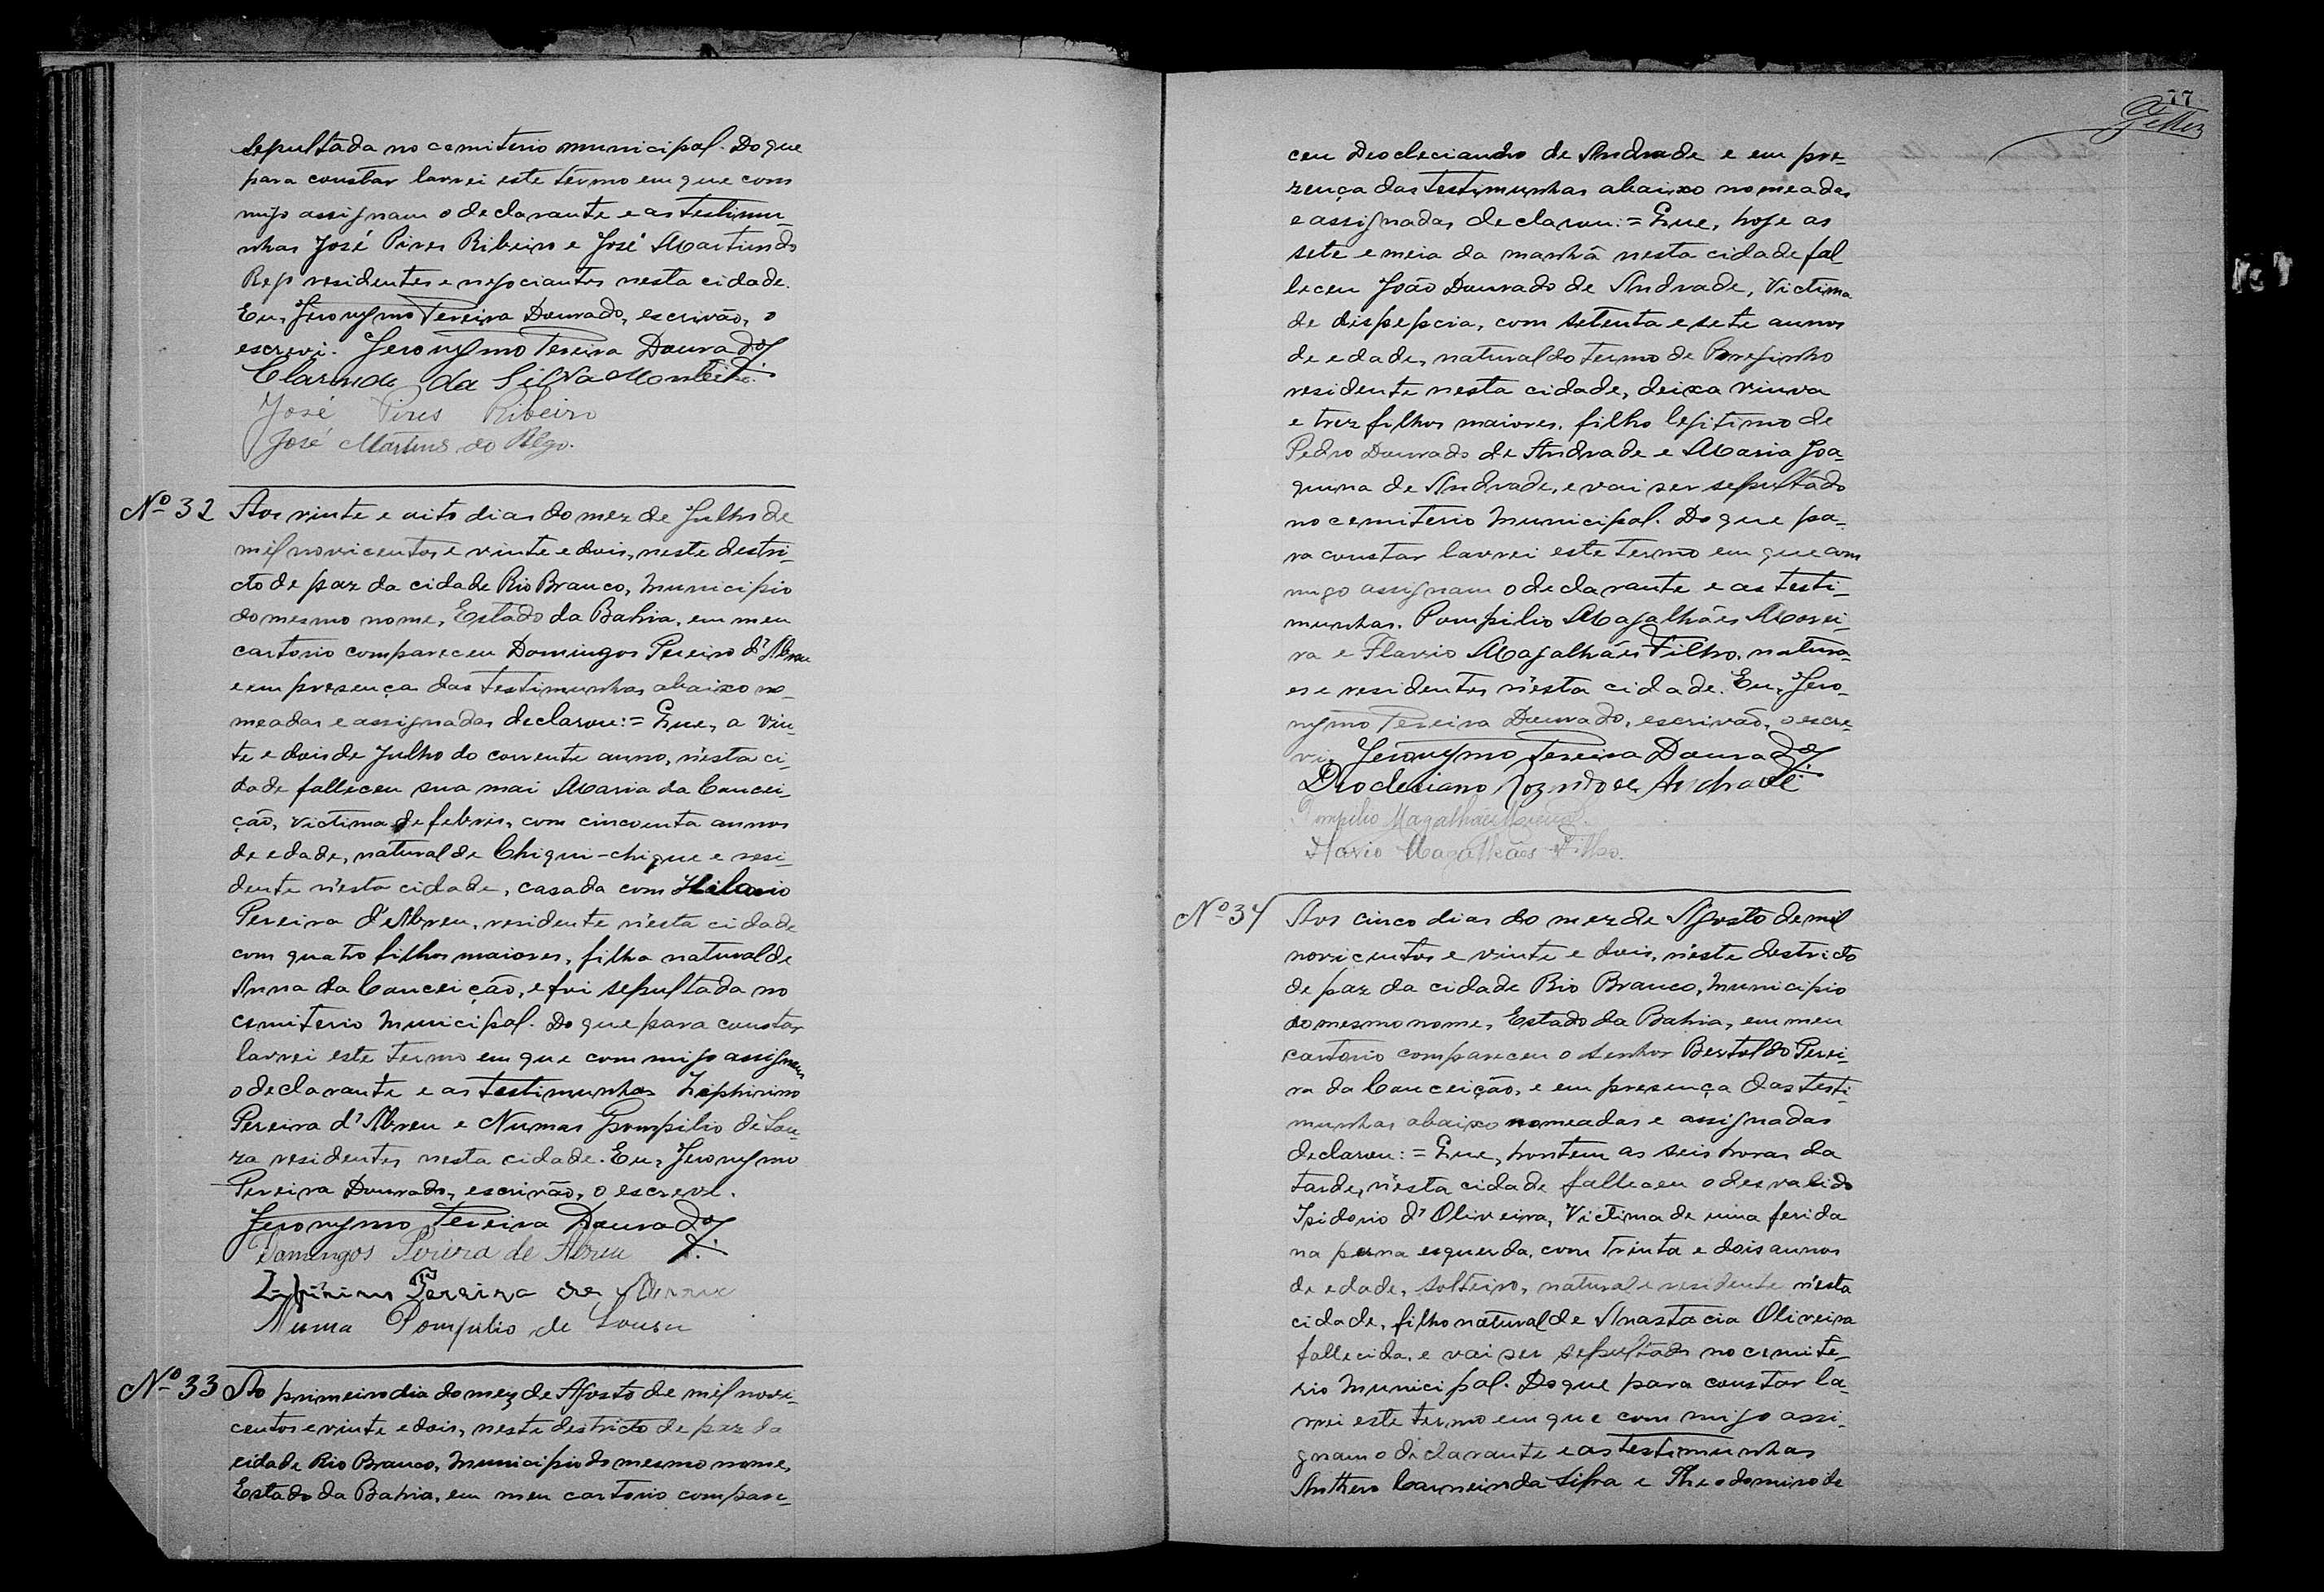 sepultada no cemiterio municipal. Do que
para constar lavrei este termo em que com
migo assignam o declarante e as testimu-
nhas José Pires Ribeiro e José Martins do
Rego residentes e negociantes nesta cidade.
Eu, Jeronymo Pereira Dourado, escrivão, o
escrevi. Jeronymo Pereira Dourado
Clarindo da Silva Monteiro.
José Pires Ribeiro
José Martins do Rego.
Nº 32 Aos vinte e oito dias do mez de Julho de
mil novicentos e vinte e dois, neste destri-
cto de paz da cidade Rio Branco, Municipio
do mesmo nome, Estado da Bahia, em meu
cartorio compareceu Domingos Pereira d'Abreu
e em presença das testimunhas abaixo no-
meadas e assignadas declarou:= Que, a vin-
te e dois de Julho do corrente anno, n'esta ci-
dade falleceu sua mai Maria da Concei-
ção, victima de febres, com cincoenta annos
de edade, natural de Chiqui-chique e resi-
dente n'esta cidade, casada com Hilario
Pereira d'Abreu, residente n'esta cidade
com quatro filhos maiores, filha natural de
Anna da Conceição, e foi sepultada no
cemiterio Municipal. Do que para constar
lavrei este termo em que commigo assignam
o declarante e as testimunhas Zephirino
Pereira d'Abreu e Numas Pompilio de Sou-
za residentes nesta cidade. Eu, Jeronymo
Pereira Dourado, escrivão, o escrevi.
Jeronymo Pereira Dourado
Domingos Pereira de Abreu
Zephirino Pereira de Abreu
Numa Pompilio de Sousa
Nº 33 Ao primeiro dia do mez de Agosto de mil novi-
centos e vinte e dois, neste destricto de paz da
cidade Rio Branco, Municipio do mesmo nome,
Estado da Bahia, em meu cartorio compare-
77
ceu Deocleciandro de Andrade e em pre-
zença das testimunhas abaixo nomeadas
e assignadas declarou:= Que, hoje as
sete e meia da manhã nesta cidade fal-
leceu João Dourado de Andrade, victima
de dispepcia, com setenta e sete annos
de edade, natural do termo de Brejinho
residente nesta cidade, deixa viuva
e trez filhos maiores, filho legitimo de
Pedro Dourado de Andrade e Maria Joa-
quina de Andrade, e vai ser sepultado
no cemiterio Municipal. Do que pa-
ra constar lavrei este termo em que com
migo assignam o declarante e as testi-
munhas. Pompilio Magalhães Morei-
ra e Flavio Magalhães Filho, natura-
es e residentes n'esta cidade. Eu, Jero-
nymo Pereira Dourado, escrivão, o escre-
vi. Jeronymo Pereira Dourado
Deocleciano de Andrade
Pompilio Magalhães Moreira.
Flavio Magalhães Filho.
Nº 34 Aos cinco dias do mez de Agosto de mil
novicentos e vinte e dois, n'este destricto
de paz da cidade Rio Branco, Municipio
do mesmo nome, Estado da Bahia, em meu
cartorio compareceu o senhor Bertoldo Perei-
ra da Conceição, e em presença das testi-
munhas abaixo nomeadas e assignadas
declarou:= Que, hontem as seis horas da
tarde, n'esta cidade falleceu o desvalido
Isidorio d'Oliveira, victima de uma ferida
na perna esquerda, com trinta e dois annos
de edade, solteiro, natural e residente n'esta
cidade, filho natural de Anastacia Oliveira
fallecida, e vai ser sepultado no cemite-
rio Municipal. Do que para constar la-
vrei este termo em que com migo assi-
gnam o declarante e as testimunhas
Anthero Carneiro da Silva e Theodomiro de